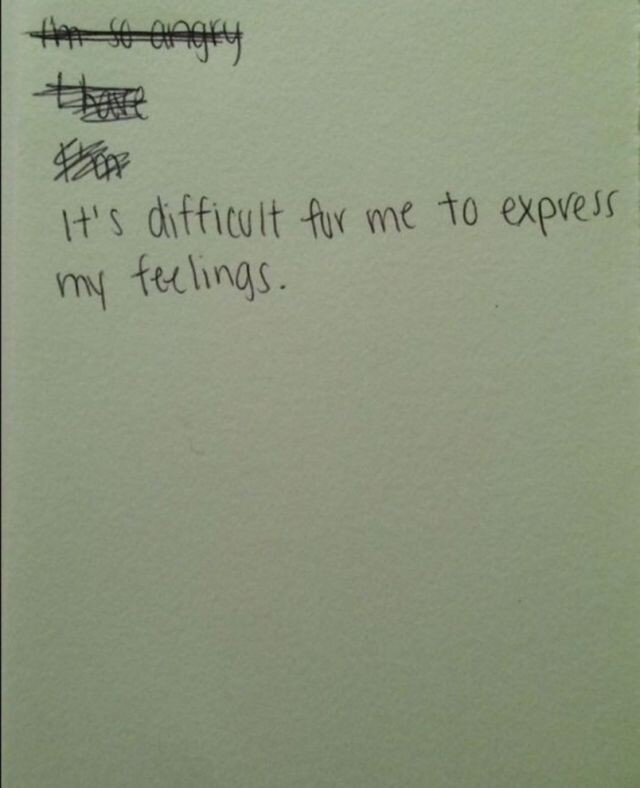 I'm so angry
It's difficult for me to express
my feelings.